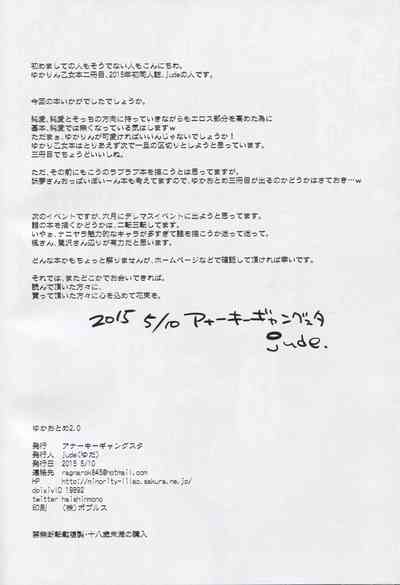 初めましての人もそうでない人もこんにちわ。
ゆかりん乙女本二冊目、2015年初同人誌、judeの人です。
今回の本いかがでしたでしょうか。
純愛、純愛とそっちの方向に持っていきながらもエロス部分を高めた為に
基本、純愛では無くなっている気はしますw
ただまぁ、ゆかりんが可愛ければいいんじゃないでしょうか！
ゆかりこ乙女本はとりあえず次で一旦の区切りとしようと思っています。
三冊目でちょうどいいしね。
ただ、その前にもこうのラブラブ本を描こうとは思ってますが。
妖夢さんおっぱいぼいーん本も考えてますので、ゆかおとめ三冊目が出るのかどうかはさておき…w
次のイベントですが、六月にデレマスイベントに出ようと思ってます。
誰の本を描くかどうかは、二転三転してます。
いやぁ、ナニヤラ魅力的なキャラが多すぎて誰を描こうか迷って迷って。
楓さん、鷺沢さん辺りが有力だと思います。
どんな本かもちょっと解りませんが、ホームページなどで確認して頂ければ幸いです。
それでは、またどこかでお会いできれば。
読んで頂いた方々に、
買って頂いた方々に心を込めて花束を。
2015 5/10 アナーキーギャングスタ
jude.
ゆかおとめ2.0
発行 アナーキーギャングスタ
発行人 jude(ゆだ)
発行日 2015 5/10
連絡先 ragnarok845@hotmail.com
HP http://minority-lilac.sakura.ne.jp/
doixivID 19892
twitter haishinmono
印刷 (株)ポプルス
禁無断転載複製・十八歳未満の購入